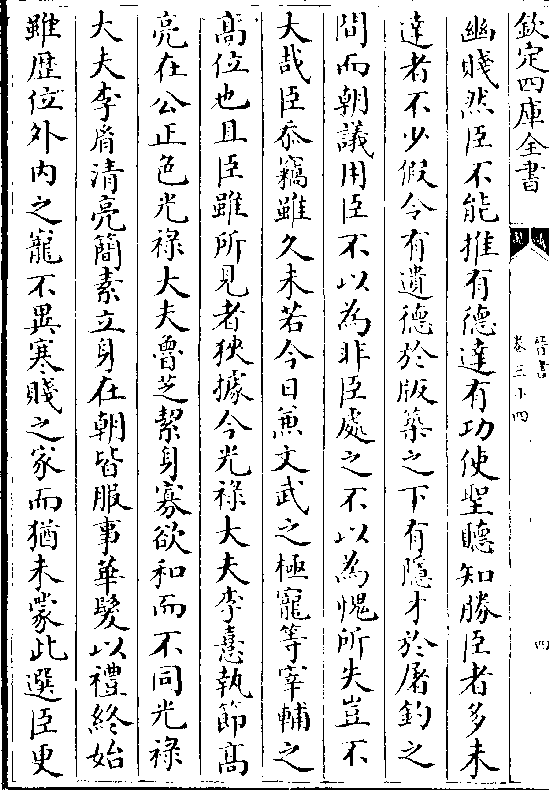 欽定四庫全書
晉書
卷三十四
四
幽賤然臣不能推有德達有功使聖聽知勝臣者多未
達者不少假令有遺德於版築之下有隱才於屠釣之
間而朝議用臣不以為非臣處之不以為愧所失豈不
大哉臣忝竊雖久未若今日兼文武之極寵等宰輔之
髙位也且臣雖所見者狹據今光祿大夫李憙執節髙
亮在公正色光祿大夫魯芝絜身寡欲和而不同光祿
大夫李胤清亮簡素立身在朝皆服事華髮以禮終始
雖歴位外内之寵不異寒賤之家而猶未蒙此選臣更